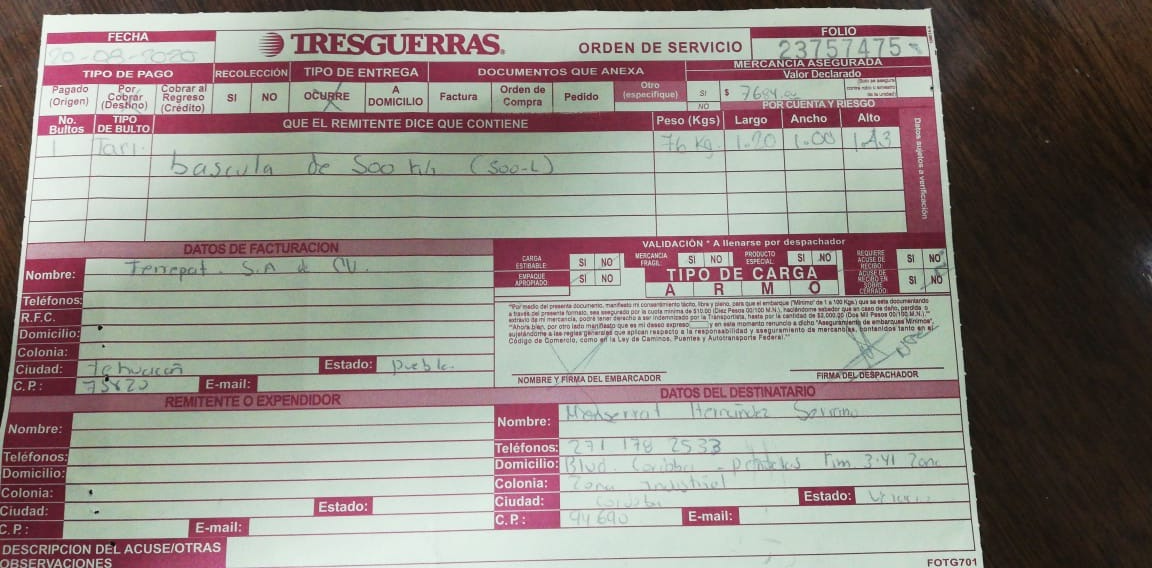 FECHA
20-08-2020
TRESGUERRAS®
ORDEN DE SERVICIO
FOLIO
23757475
TIPO DE PAGO
RECOLECCIÓN
TIPO DE ENTREGA
DOCUMENTOS QUE ANEXA
MERCANCÍA ASEGURADA
Valor Declarado
Pagado (Origen)
Por Cobrar (Destino)
Cobrar al Regreso (Crédito)
SI NO
OCURRE
A DOMICILIO
Factura
Orden de Compra
Pedido
Otro (especifique)
SI
NO
$
POR CUENTA Y RIESGO
No. Bultos
TIPO DE BULTO
QUE EL REMITENTE DICE QUE CONTIENE
Peso (Kgs)
Largo
Ancho
Alto
1 Tari. 76 kg. 1.20 1.00 1.43
bascula de 500 (500-L)
Datos sujetos a verificación
DATOS DE FACTURACION
Nombre:
Teléfonos:
R.F.C.
Domicilio:
Colonia:
Ciudad: Tehuacán Estado: Puebla.
C.P.: E-mail:
VALIDACIÓN * A llenarse por despachador
CARGA ESTIBABLE: SI NO
MERCANCIA FRAGIL: SI NO
PRODUCTO ESPECIAL: SI NO
REQUIERE ACUSE DE RECIBO: SI NO
EMPAQUE APROPIADO: SI NO
TIPO DE CARGA
A R M O
ACUSE DE RECIBO EN SOBRE CERRADO: SI NO
"Por medio del presente documento, manifiesto mi consentimiento tácito, libre y pleno, para que el embarque ("Mínimo" de 1 a 100 Kgs.) que se esta documentando
a través del presente formato, sea asegurado por la cuota mínima de $10.00 (Diez Pesos 00/100 M.N.), haciéndome sabedor que en caso de daño, perdida o
extravío de mi mercancia, podré tener derecho a ser indemnizado por la Transportista, hasta por la cantidad de $2,000.00 (Dos Mil Pesos 00/100 M.N.)."
"Ahora bien, por otro lado manifiesto que es mi deseo expreso____y en este momento renuncio a dicho "Aseguramiento de embarques Mínimos",
sujetándome a las reglas generales que aplican respecto a la responsabilidad y aseguramiento de mercancías, contenidos tanto en el
Código de Comercio, como en la Ley de Caminos, Puentes y Autotransporte Federal."
NOMBRE Y FIRMA DEL EMBARCADOR
FIRMA DEL DESPACHADOR
REMITENTE O EXPENDIDOR
Nombre:
Teléfonos:
Domicilio:
Colonia:
Ciudad: Estado:
C.P.: E-mail:
DATOS DEL DESTINATARIO
Nombre: Monserrat Hernández Serrano
Teléfonos: 271 178 2533
Domicilio: Blvd. Córdoba - Peñuelas Km. 3.41 Zona
Colonia: Zona Industrial
Ciudad: Cordoba Estado:
C.P.: 94690 E-mail:
DESCRIPCION DEL ACUSE/OTRAS
OBSERVACIONES
FOTG701